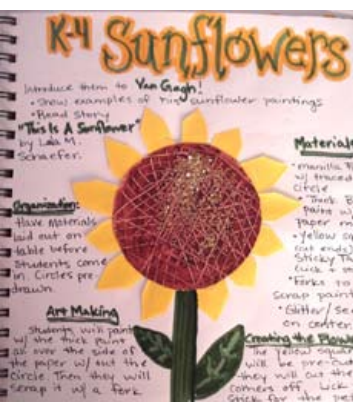 K-4 Sunflowers
Introduce them to Van Gogh!
• Show examples of his sunflower paintings
• Read Story
"This Is A Sunflower"
by Lola M.
Schaefer.
Organization:
Have Materials
laid out on
table before
Students come
in Circles pre-
drawn.
Art Making
Students will paint
w/ the thick paint
all over the side of
the paper w/ out the
circle. Then they will
scrape it w/ a fork.
Material
• manilla
w/ traced
circle
• Thick
paint w/
paper
• Yellow
Sticky
(lick + st
• Forks to
scrap paint
• Glitter/se
on center
Creating the Flower
The yellow square
will be pre-cu
they will cut the
corners off, Lick
Stick for the pe